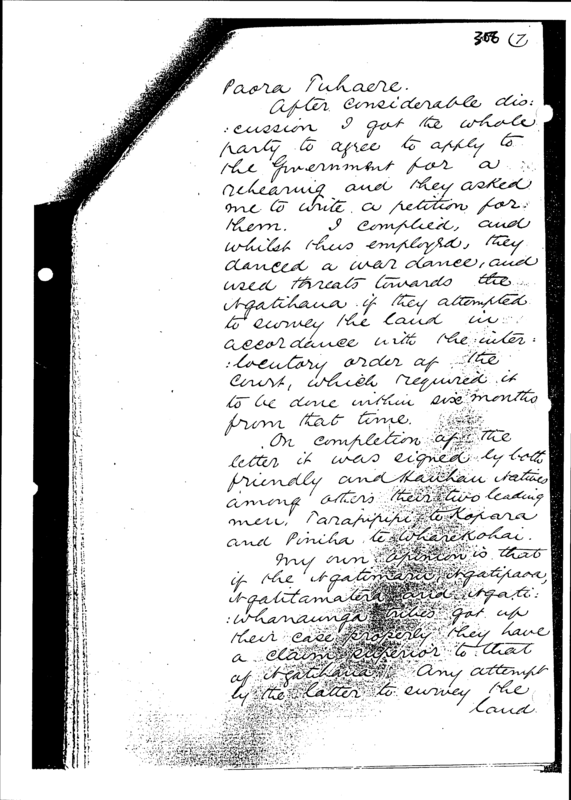 306 (7)
Paora Tuhaere.
After considerable dis:
:cussion I got the whole
party to agree to apply to
the Government for a
rehearing and they asked
me to write a petition for
them. I complied, and
whilst thus employed, they
danced a war dance, and
used threats towards the
Ngatihaua if they attempted
to survey the land in
accordance with the inter:
:locutory order of the
Court, which required it
to be done within six months
from that time.
On completion of the
letter it was signed by both
friendly and Hauhau Natives
among others their two leading
men, Tarapipipi te Kopara
and Piniha te Wharekohai.
My own opinion is that
if the Ngatimaru, Ngatipaoa,
Ngatitamatera and Ngati:
:whanaunga tribes got up
their case properly they have
a claim superior to that
of Ngatihaua. Any attempt
by the latter to survey the
land